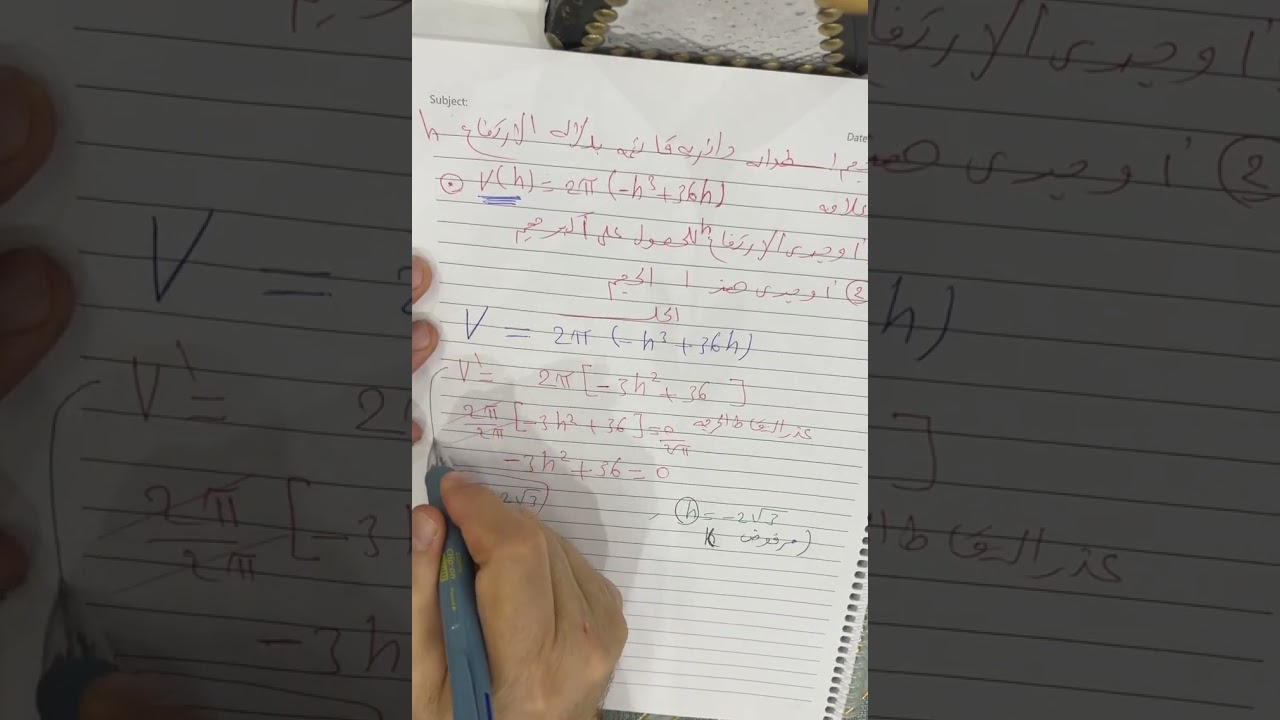 Subject:
Date
دائرية قائمة بدلالة الارتفاع h
V(h) = 2π (-h³ + 36h)
اوجدي الارتفاع h للحصول على أكبر حجم
② اوجدي هذا الحجم
الحل
V = 2π (-h³ + 36h)
V' = 2π [-3h² + 36]
2π/2π [-3h² + 36] = 0/2π عند النقاط الحرجة
-3h² + 36 = 0
= 2√3 , h = -2√3
مرفوض